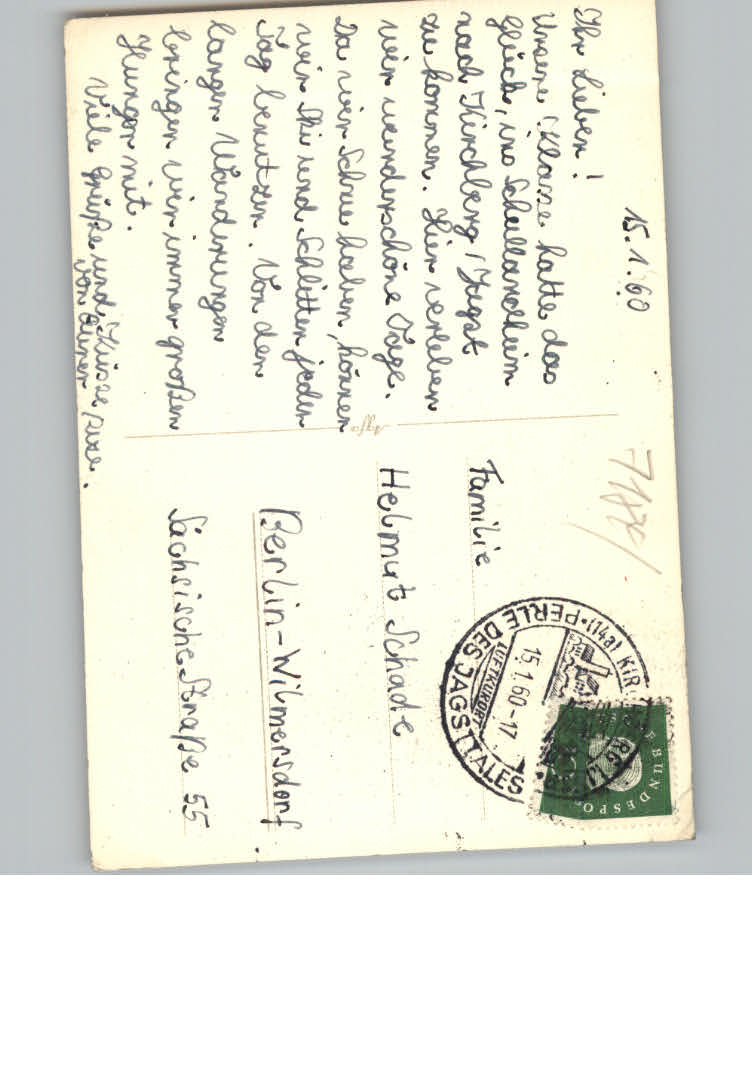 15.1.60
Ihr Lieben!
Unsere Klasse hatte das
Glück, ins Schullandheim
nach Kirchberg / Jagst
zu kommen. Hier verleben
wir wunderschöne Tage.
Da wir Schnee haben, können
wir Ski und Schlitten jeden
Tag benutzen. Von den
langen Wanderungen
bringen wir immer großen
Hunger mit.
Viele Grüße und Küsse
von Eurer
Agfa
7184/
(14a) KIRCHBERG
PERLE DES JAGSTTALES
LUFTKURORT
15.1.60-17
BUNDESPOST
Familie
Helmut Schade
Berlin-Wilmersdorf
Sächsische Straße 55